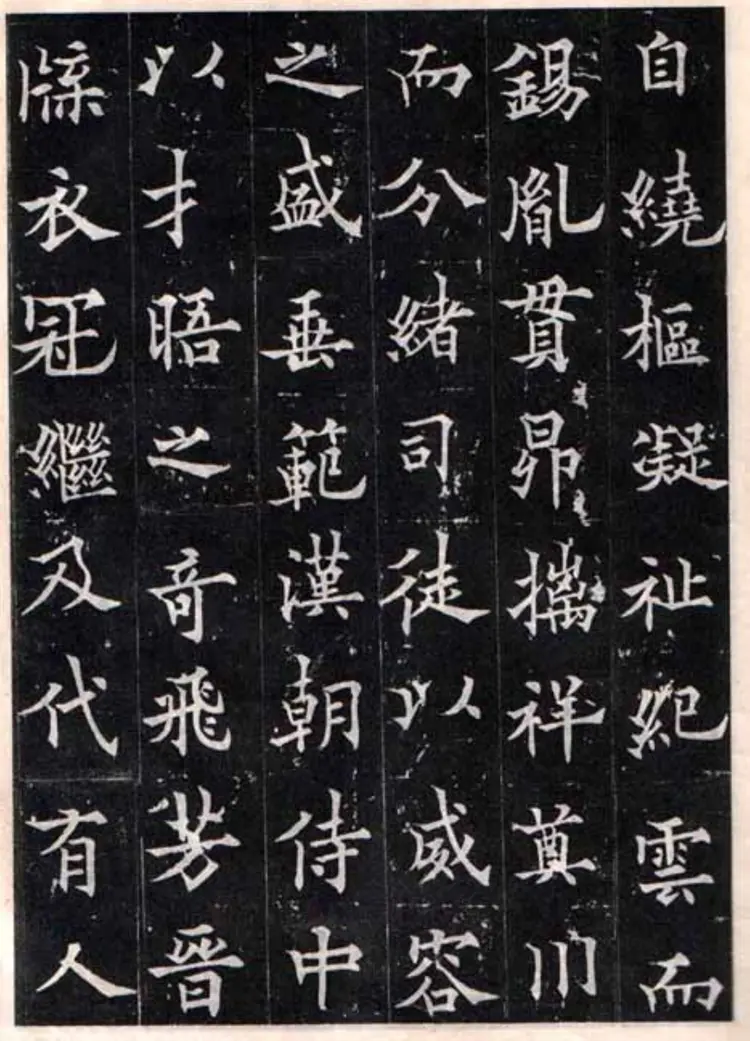 自繞樞凝祉紀雲而
錫胤貫昴攡祥奠川
而分緒司徒以威容
之盛垂範漢朝侍中
以才晤之奇飛芳晉
牒衣冠繼及代有人